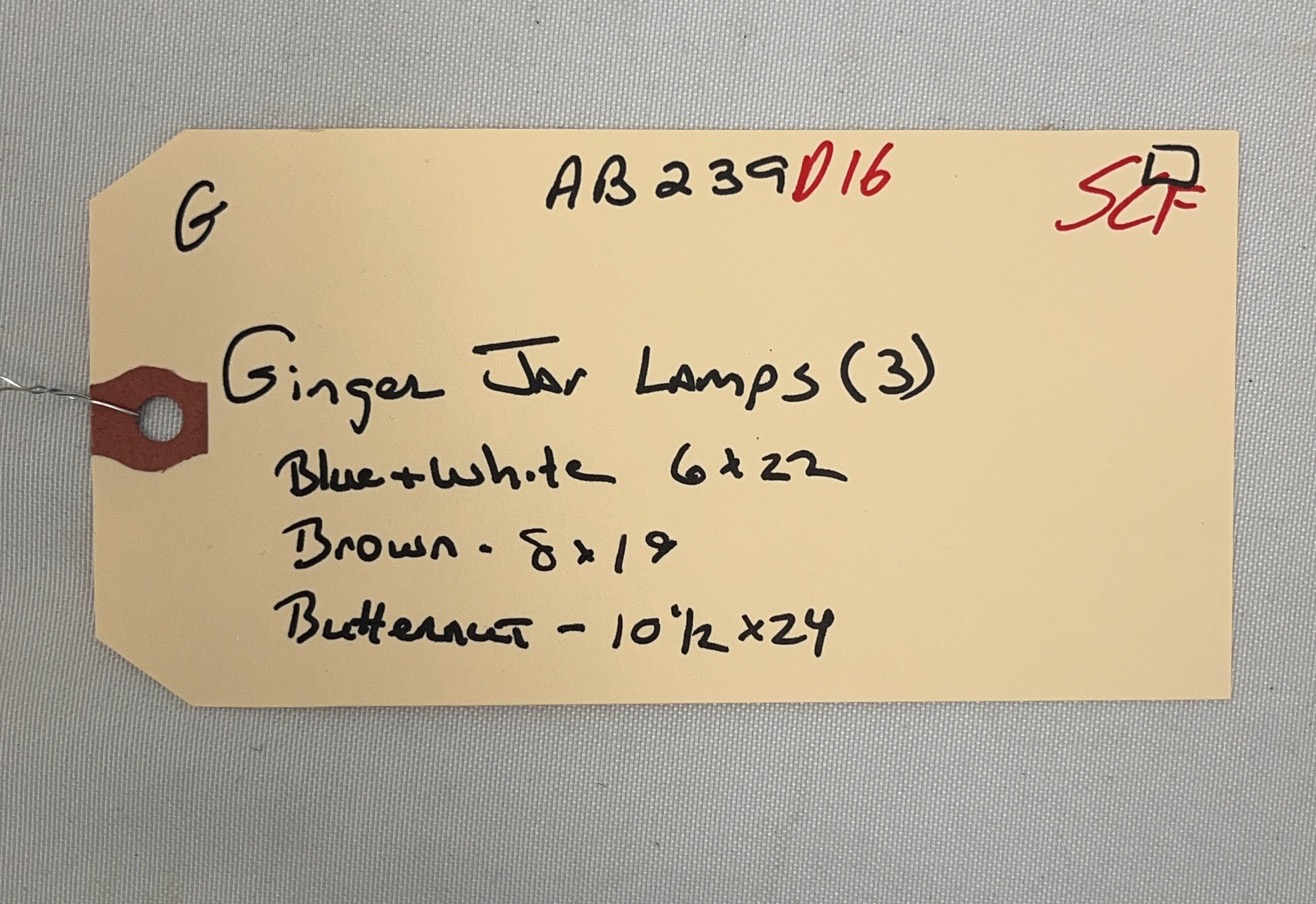 G AB239D16 SCF
Ginger Jar Lamps (3)
Blue + White 6x22
Brown - 8x18
Butternut - 10 1/2 x 24